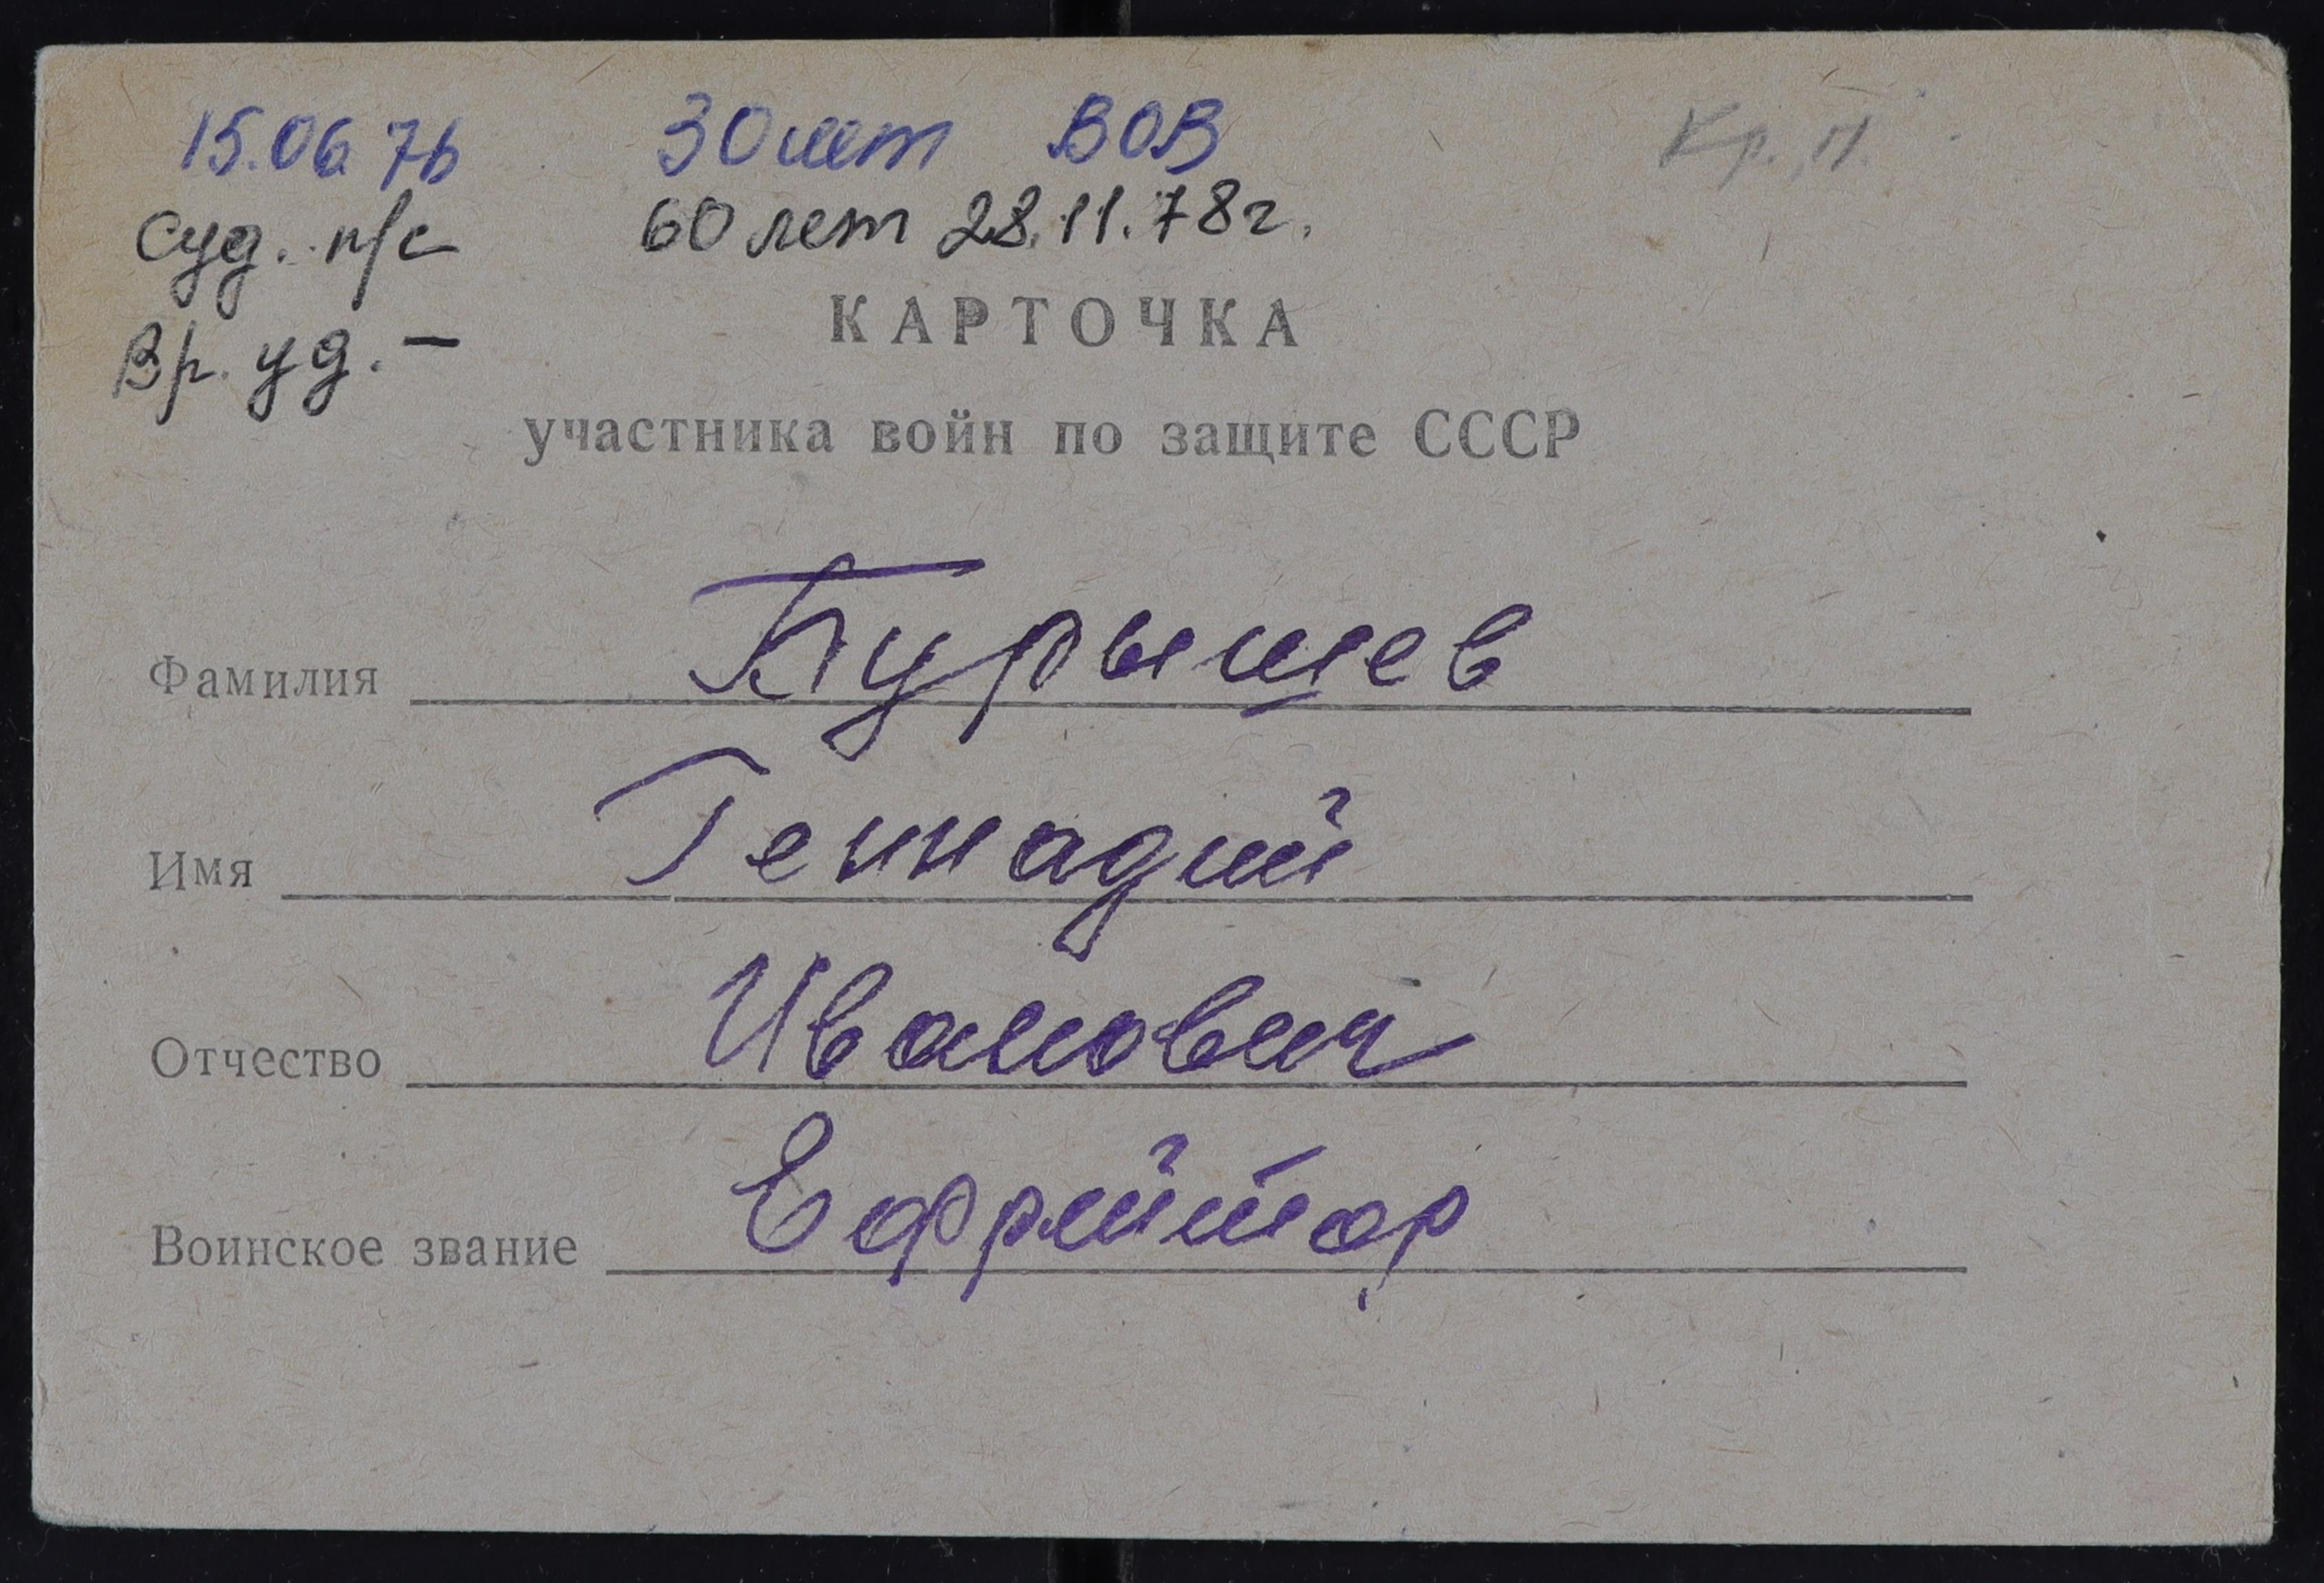 15.06 76 30 лет ВОВ Кр. п.
суд. п/с 60 лет 28.11.78 г.
Вр. уд. –
КАРТОЧКА
участника войн по защите СССР
Фамилия Бурышев
Имя Геннадий
Отчество Иванович
Воинское звание Ефрейтор